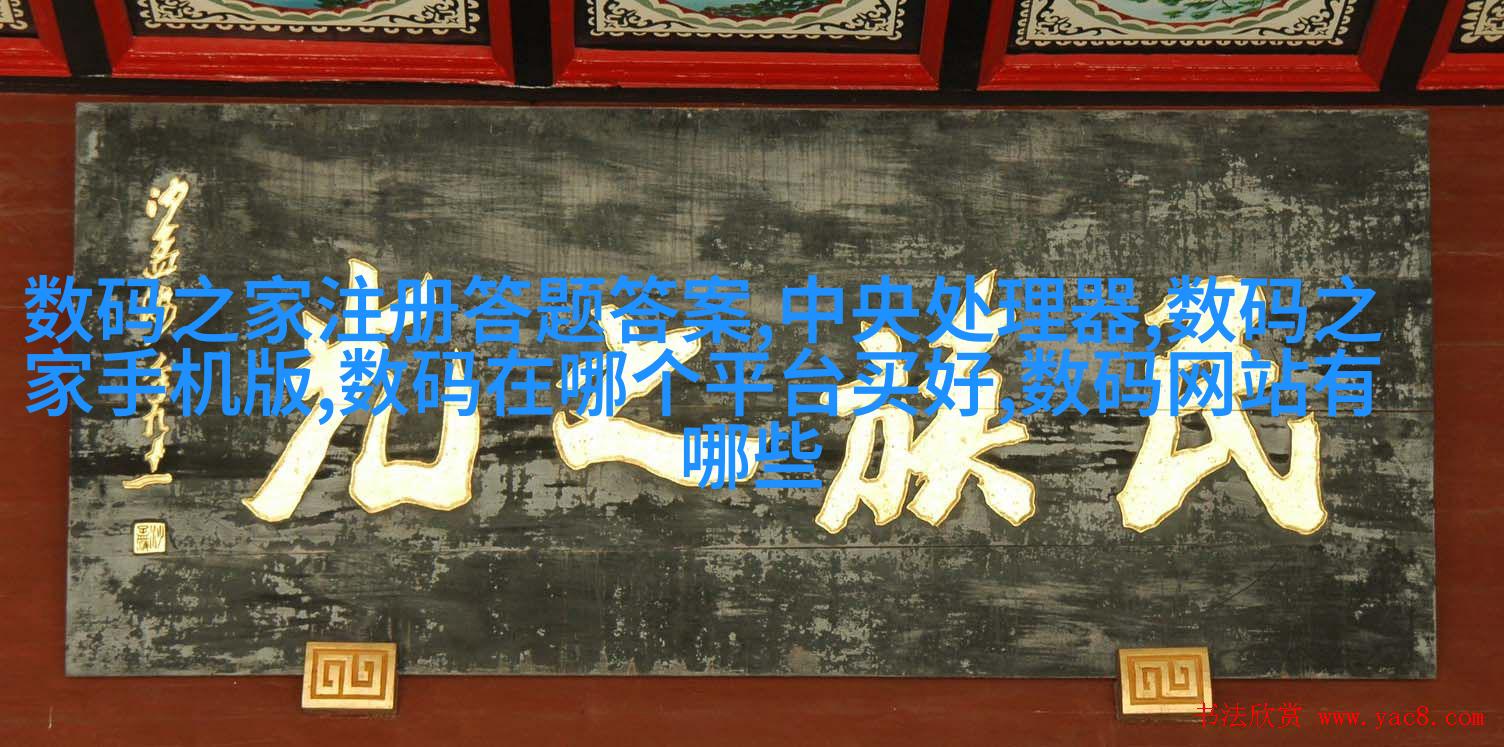 数码之家注册答题答案,中央处理器,数码之
家手机版,数码在哪个平台买好,数码网站有
哪些
民族之光
沙孟海年九十一
书法欣赏 www.yac8.com